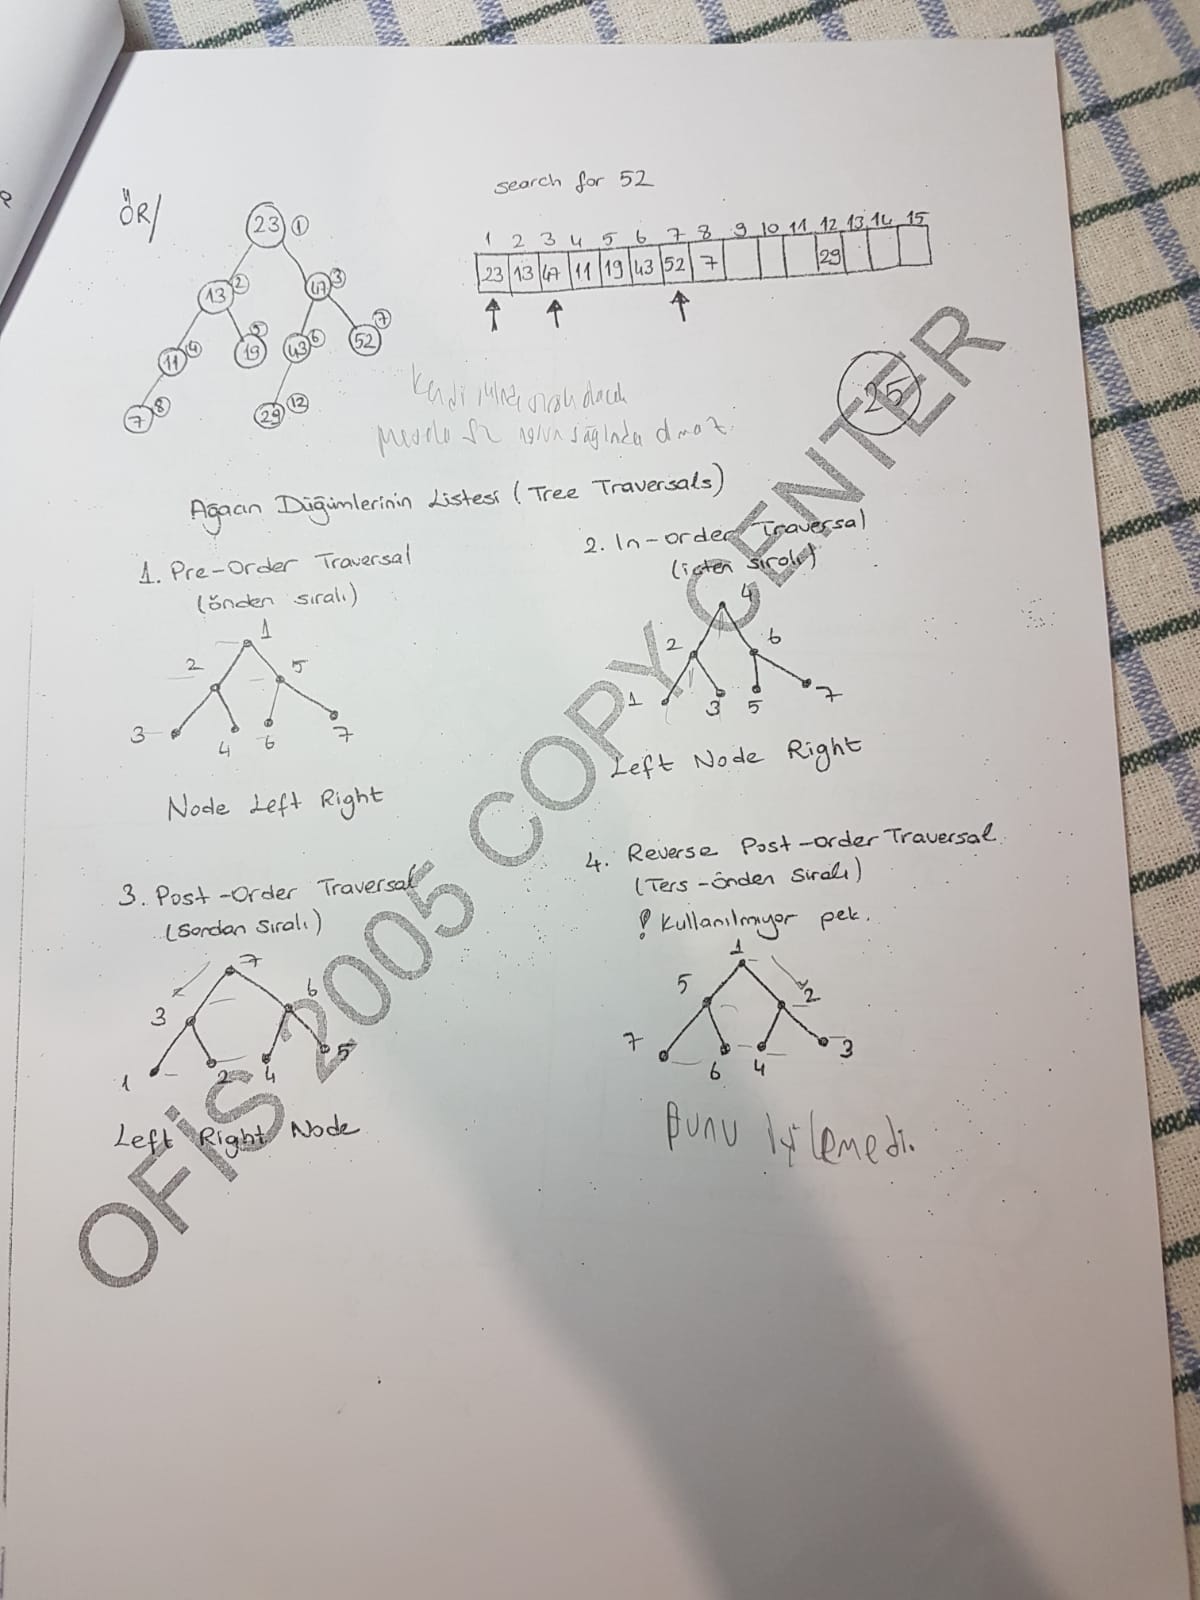 ÖR/
23 1
13 2
47 3
11 4
19 5
43 6
52 7
7 8
29 12
search for 52
1 2 3 4 5 6 7 8 9 10 11 12 13 14 15
23 13 47 11 19 43 52 7 29
25
Ağacın Düğümlerinin Listesi (Tree Traversals)
1. Pre-Order Traversal
(önden sıralı)
1
2 5
3 4 6 7
Node Left Right
2. In-order Traversal
(içten sıralı)
4
2 6
1 3 5 7
Left Node Right
3. Post-Order Traversal
(Sondan Sıralı)
7
3 6
1 2 4 5
Left Right Node
4. Reverse Post-order Traversal
(Ters-önden Sıralı)
! Kullanılmıyor pek.
1
5 2
7 6 4 3
Bunu
OFİS 2005 COPY CENTER